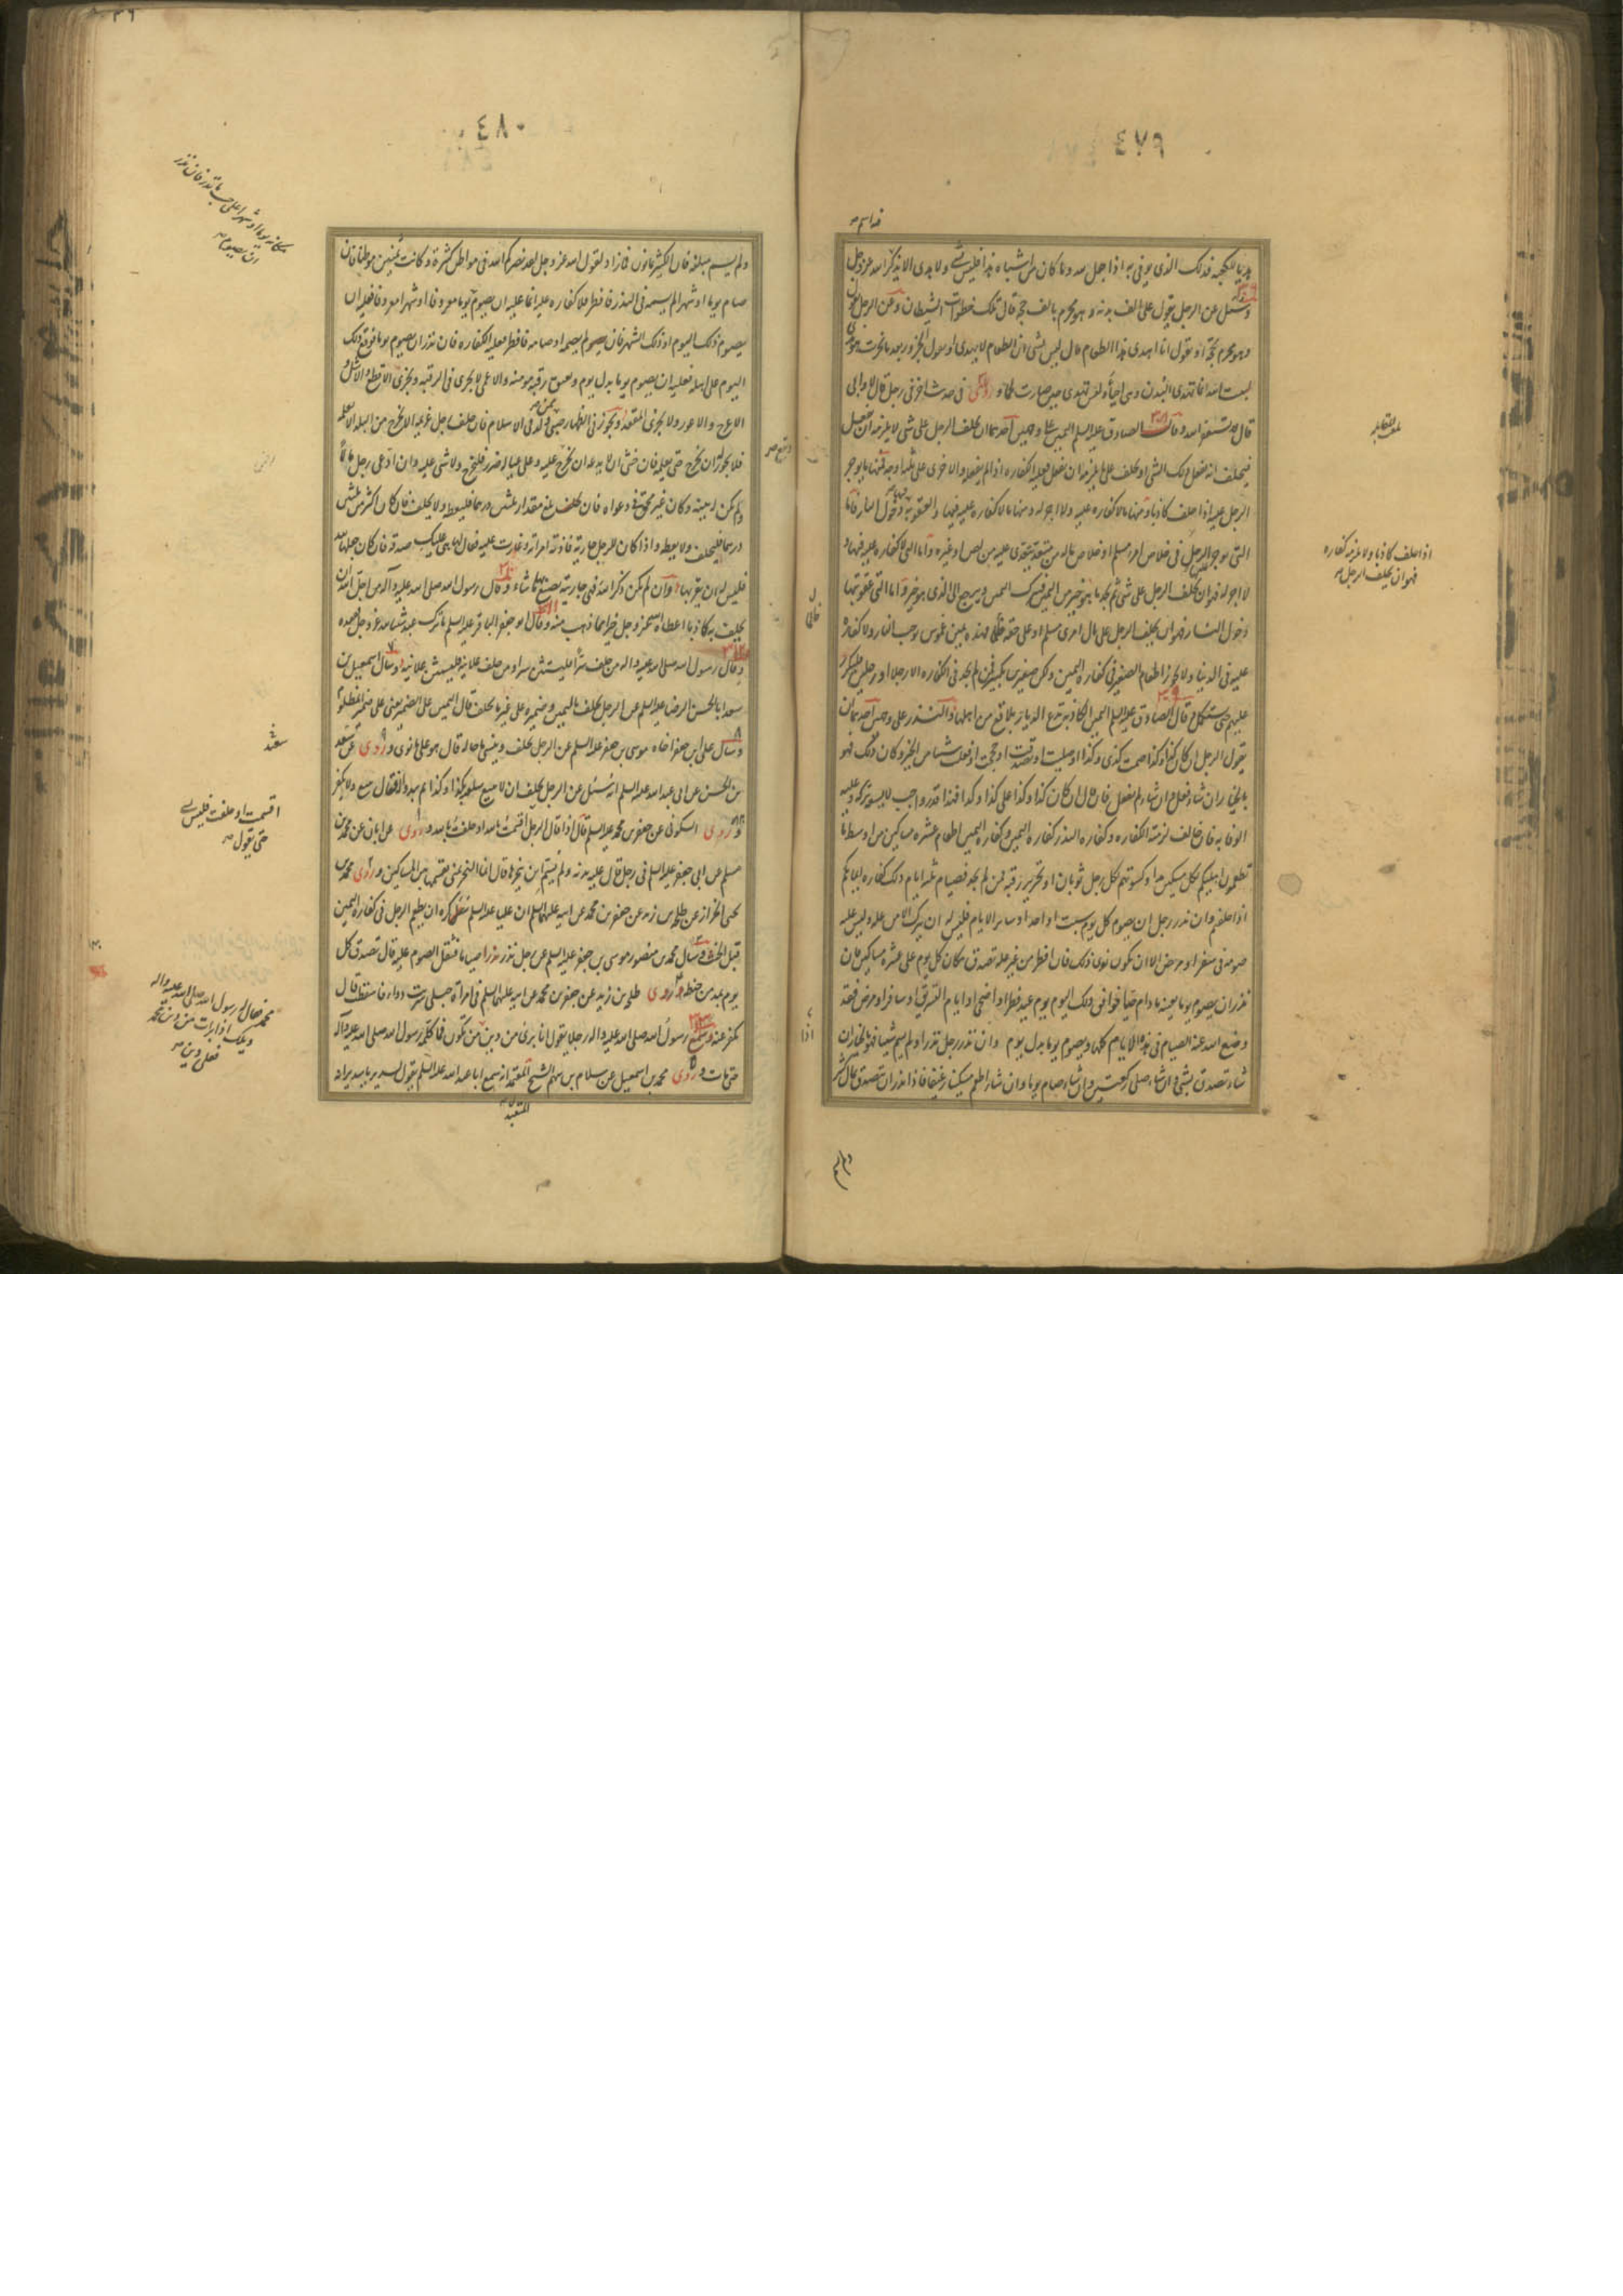 ٤٧٩
هديا للكعبة فذلك الذي يوفى به اذا جعل لله وما كان من اشباه هذا فليس بشي ولا هدى الا بذكر الله عز وجل
وسئل عن الرجل يقول على الف بدنة وهو محرم بالف حجة قال تلك خطوات الشيطان وعن الرجل يقول
وهو محرم بحجة او يقول انا اهدى هذا الطعام قال ليس بشي ان الطعام لا يهدى او يقول لجزور بعد ما نحرت هو هدى
لبيت الله انما تهدى البدن وهي احياء وليس تهدى حين صارت لحما وروى في حديث اخر في رجل قال لا وابي
قال يستغفر الله وقال الصادق عليه السلم اليمين على وجهين احدهما ان يحلف الرجل على شي لا يلزمه ان يفعل
فيحلف انه يفعل ذلك الشي او يحلف على ما يلزمه ان يفعل فعليه الكفاره اذا لم يفعله والاخرى على ثلثة اوجه فمنها ما يوجر
الرجل عليه اذا حلف كاذبا ومنها ما لا كفاره عليه ولا اجر له ومنها ما لا كفاره عليه فيها والعقوبة فيها دخول النار فاما
التي يوجر الرجل في خلاص امرء مسلم او خلاص ماله من متعد يتعدى عليه من لص او غيره واما التي لا كفاره عليه فيها و
لا اجر له فهو ان يحلف الرجل على شي ثم يجد ما هو خير من اليمين فيترك اليمين ويرجع الى الذي هو خير واما التي عقوبتها
دخول النار فهو ان يحلف الرجل على مال امرى مسلم او على حقه ظلما فهذه يمين غموس توجب النار ولا كفاره
عليه في الدنيا ولا يجوز اطعام الصغير في كفاره اليمين ولكن صغيرين بكبير فمن لم يجد في الكفاره الا رجلا او رجلين فليكرر
عليهم حتى يستكمل قال الصادق عليه السلم اليمين الكاذبة تدع الديار بلاقع من اهلها والنذر على وجهين احدهما ان
يقول الرجل ان كان كذا وكذا صمت كذى وكذا او صليت او تصدقت او حججت او فعلت شيئا من الخير وكان ذلك فهو
بالخيار ان شاء فعل وان شاء لم يفعل فان قال ان كان كذا وكذا فلله علي كذا وكذا فهذا نذر واجب لا يسع تركه وعليه
الوفا به فان خالف لزمته الكفاره وكفاره النذر كفاره اليمين وكفاره اليمين اطعام عشره مساكين من اوسط ما
تطعمون اهليكم لكل مسكين مد او كسوتهم لكل رجل ثوبان او تحرير رقبة فمن لم يجد فصيام ثلثة ايام ذلك كفاره ايمانكم
اذا حلفتم وان نذر رجل ان يصوم كل يوم سبت او احد او ساير الايام فليس له ان يتركه الا من علة وليس عليه
صومه في سفر او مرض الا ان يكون نوى ذلك فان افطر من غير علة تصدق مكان كل يوم على عشره مساكين فان
نذر ان يصوم يوما بعينه ما دام حيا فوافق ذلك اليوم يوم عيد فطر او اضحى او ايام التشريق او سافر او مرض فقد
وضع الله عنه الصيام في هذه الايام كلها ويصوم يوما بدل يوم وان نذر رجل نذرا ولم يسم شيئا فهو بالخيار ان
شاء تصدق بشي وان شاء صلى ركعتين وان شاء صام يوما وان شاء اطعم مسكينا رغيفا فاذا نذر ان تصدق بمال كثير
اذا حلف كاذبا ولا يلزمه كفاره
فهو ان يحلف الرجل
٤٨٠
ولم يسم مبلغه فان الكثير ثمانون فما زاد لقول الله عز وجل لقد نصركم الله في مواطن كثيرة وكانت ثمنين موطنا فان
صام يوما او شهرا لم يسمه في النذر فافطر فلا كفاره عليه انما عليه ان يصوم يوما معروفا او شهرا معروفا فعليه ان
يصوم ذلك اليوم او ذلك الشهر فان لم يصمه او صامه فافطر فعليه الكفاره فان نذر ان يصوم يوما فوقع ذلك
اليوم على اهله فعليه ان يصوم يوما بدل يوم ويعتق رقبة مومنة والاعمى لا يجزى في الرقبة ويجزى الاقطع والاشل و
الاعرج والاعور ولا يجزى المقعد ويجوز في الظهار صبي ممن ولد في الاسلام فان حلف رجل غريمه الا يخرج من البلد الا يعلمه
فلا يجوز ان يخرج حتى يعلمه فان خشى ان لا يدعه ان يخرج عليه وعلى عياله ضرر فليخرج ولا شي عليه وان ادعى رجل مالا
ولم يكن له بينة وكان غير محق في دعواه فان بلغ مقدار ثلثين درهما فليعطه ولا يحلف فان كان اكثر من ثلثين
درهما فليحلف ولا يعطه واذا كان للرجل جارية فاذته امراته وغارت عليه فقال لها هي عليك صدقة فان كان جعلها لله
فليس له ان يقربها وان لم يكن ذكر الله فهي جاريته يصنع بها ما شاء وقال رسول الله صلى الله عليه وآله من اجل الله ان
يحلف به كاذبا اعطاه الله عز وجل خيرا مما ذهب منه وقال ابو جعفر الباقر عليه السلم ما ترك عبد شيئا لله عز وجل ففقده
وقال رسول الله صلى الله عليه واله من حلف سرا فليستثن سرا ومن حلف علانية فليستثن علانية وسال اسمعيل بن
سعد ابا الحسن الرضا عليه السلم عن الرجل يحلف باليمين وضميره على غير ما حلف قال اليمين على الضمير يعنى على ضمير المظلوم
وسال علي بن جعفر اخاه موسى بن جعفر عليه السلم عن الرجل يحلف وينسى ما قاله قال هو على ما نوى وروى عن سعد
بن الحسن عن ابي عبد الله عليه السلم انه سئل عن الرجل يحلف ان لا يبيع سلعته بكذا وكذا ثم يبدو له فقال يبيع ولا يكفر
وروى السكونى عن جعفر بن محمد عليه السلم قال اذا قال الرجل اقسمت بالله او حلفت بالله وروى عن ابان عن محمد بن
مسلم عن ابي جعفر عليه السلم في رجل قال عليه بدنة ولم يسم اين ينحرها قال انما النحر بمنى يقسمها بين المساكين وروى محمد بن
يحيى الخزاز عن طلحة بن زيد عن جعفر بن محمد عن ابيه عليهما السلم ان عليا عليه السلم كره ان يطعم الرجل في كفاره اليمين
قبل الحنث وسال محمد بن منصور موسى بن جعفر عليه السلم عن رجل نذر نذرا صياما فثقل الصوم عليه قال تصدق كل
يوم بمد من حنطة وروى طلحة بن زيد عن جعفر بن محمد عن ابيه عليهما السلم في امرأة حبلى شربت دواء فاسقطت قال
تكفر عنه وسمع رسول الله صلى الله عليه واله رجلا يقول انا برئ من دين من تكون فما كلمه رسول الله صلى الله عليه وآله
حتى مات وروى محمد بن اسمعيل عن سلام بن سهم الشيخ المتعبد انه سمع ابا عبد الله عليه السلم يقول لسدير يا سدير انه
المتعبد
اقسمت او حلفت فليس بشي
حتى يقول
محمد فقال له رسول الله صلى الله عليه واله
ويلك اذا برات من دين محمد
فعلى دين من